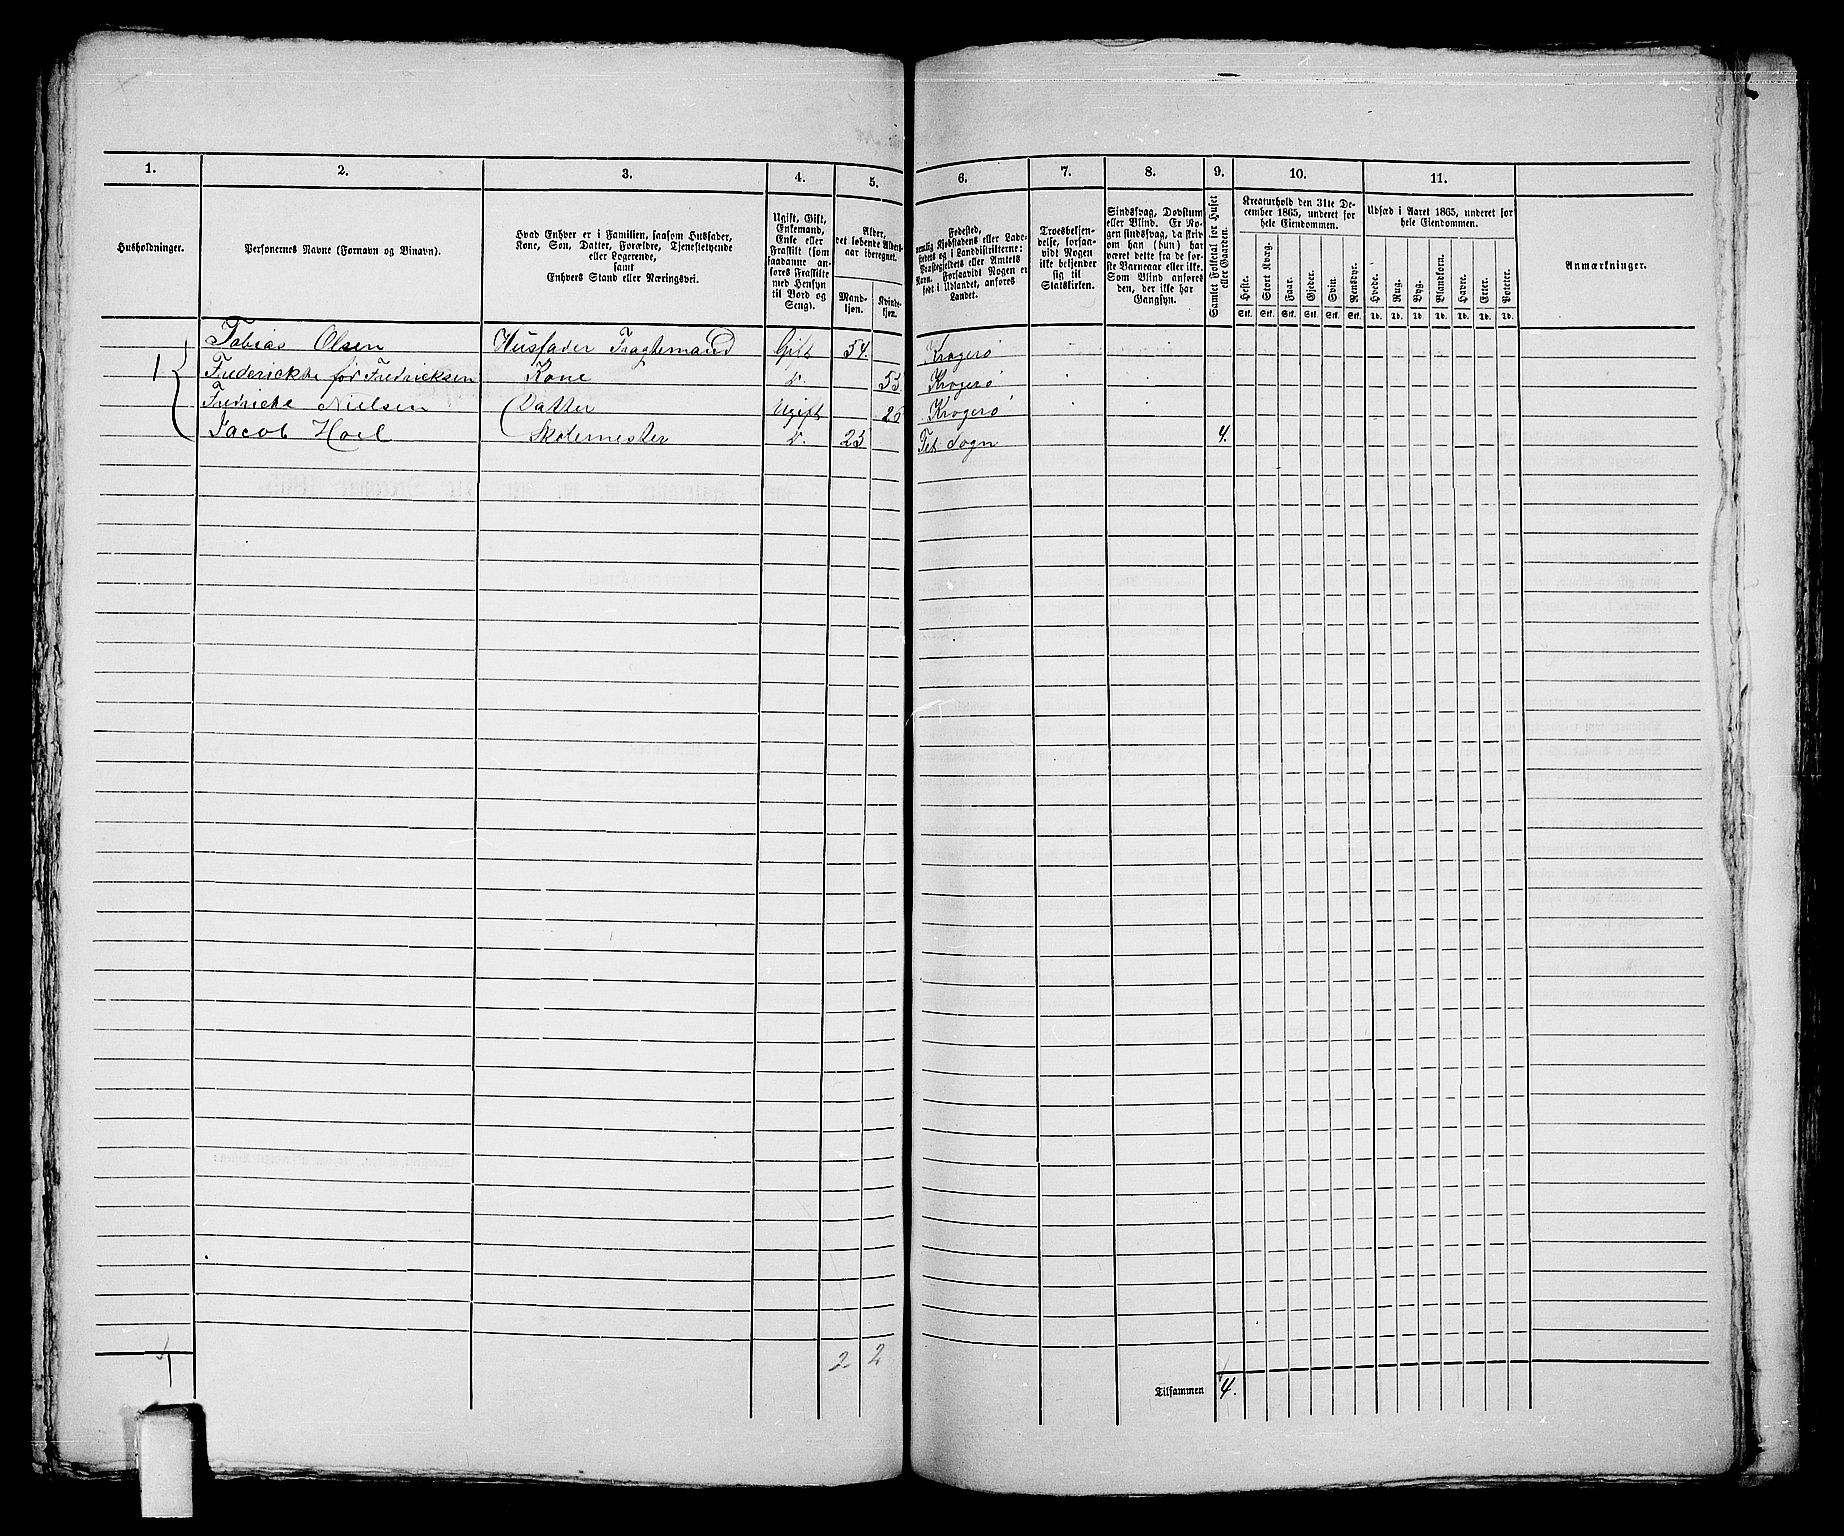 1. 2. 3. 4. 5. 6. 7. 8. 9. 10. 11.
Husholdninger.
Personernes Navne (Fornavn og Binavn).
Hvad Enhver er i Familien, saasom Husfader,
Kone, Søn, Datter, Forældre, Tjenestetyende
eller Logerende,
samt
Enhvers Stand eller Næringsvei.
Ugift, Gift,
Enkemand,
Enke eller
Fraskilt (som
saadanne an-
føres Fraskilte
med Hensyn
til Bord og
Seng).
Alder,
det løbende Alders-
aar iberegnet.
Mand-
kjøn.
Kvinde-
kjøn.
Fødested,
nemlig Kjøbstadens eller Lade-
stedets og i Landdistrikterne:
Præstegjeldets eller Amtets
Navn. Forsaavidt Nogen er
født i Udlandet, anføres
Landet.
Troesbekjen-
delse, forsaa-
vidt Nogen
ikke bekjender
sig til
Statskirken.
Sindssvag, Døvstum
eller Blind. Er No-
gen sindssvag, da skriv
om han (hun) har
været dette fra de før-
ste Barneaar eller ikke.
Som Blind anføres
den, der ikke har
Gangsyn.
Samlet Folketal for Huset
eller Gaarden.
Kreaturhold den 31te De-
cember 1865, underet for
hele Eiendommen.
Heste. Stort Kvæg. Faar. Gjeder. Svin. Rensdyr.
Stk. Stk. Stk. Stk. Stk. Stk.
Udsæd i Aaret 1865, underet for
hele Eiendommen.
Hvede. Rug. Byg. Blandkorn. Havre. Erter. Poteter.
Td. Td. Td. Td. Td. Td. Td.
Anmærkninger.
Tobias Olsen Husfader Fragtemand Gift 54. Kragerø
1 Frederickke før Fredricksen Kone d. 53 Kragerø
Fredricke Nielsen Datter Ugift 26 Kragerø
Jacob Hoel Skolemester d. 23 Fet Sogn 4.
2 2
Tilsammen 4.